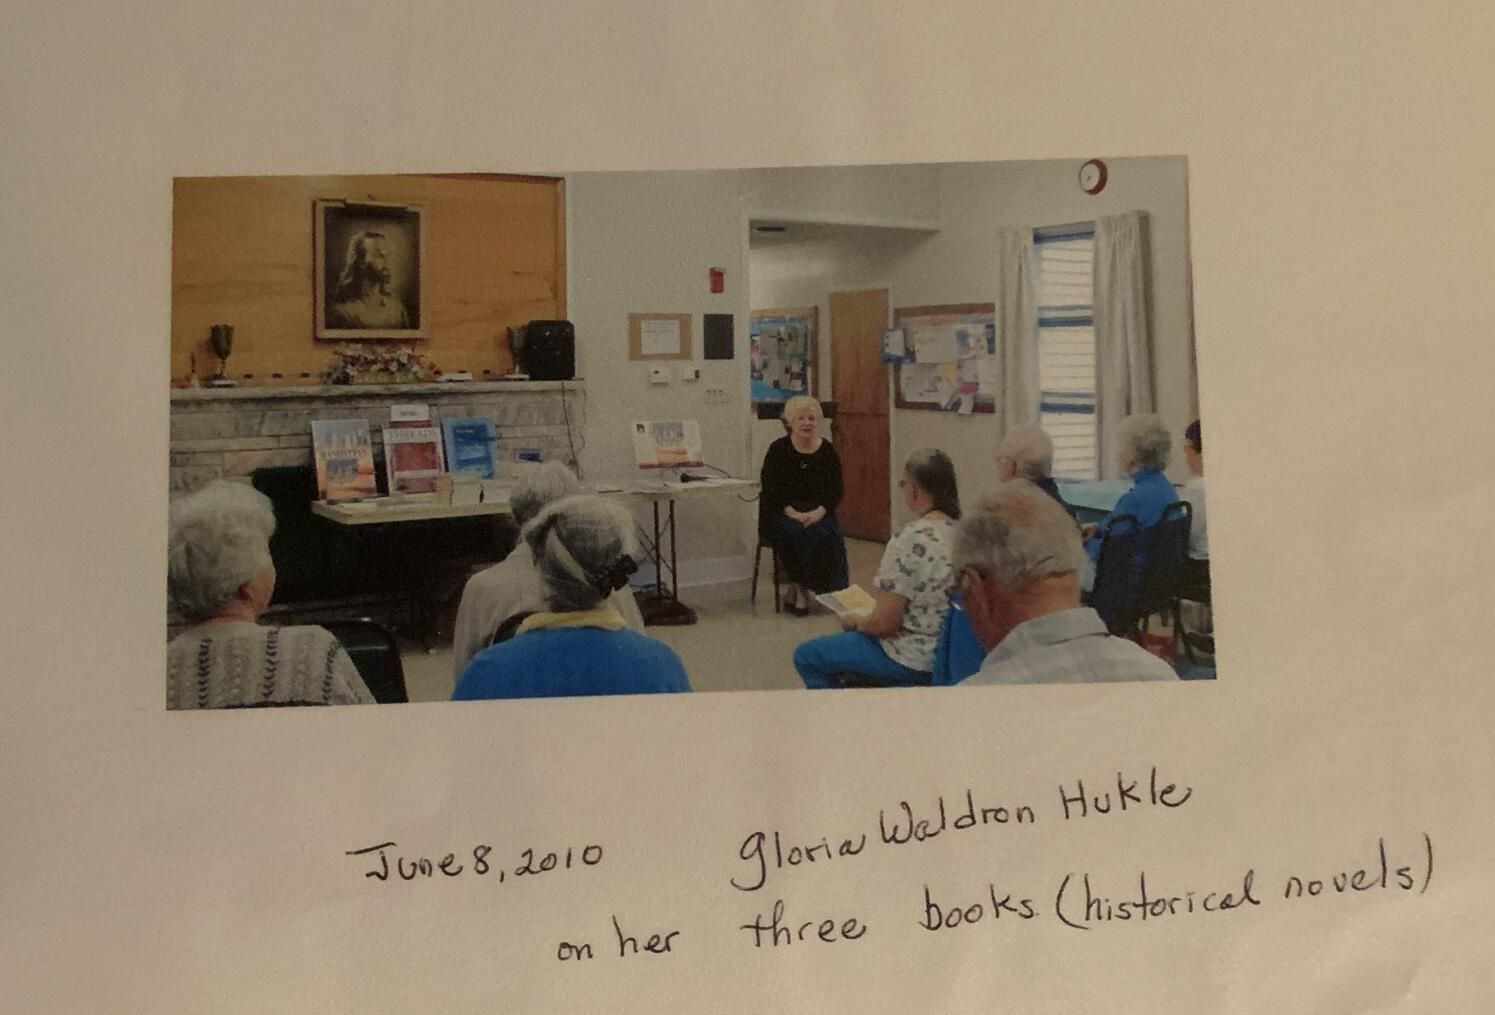 MANHATTAN
THREADS
June 8, 2010 Gloria Waldron Hukle
on her three books (historical novels)